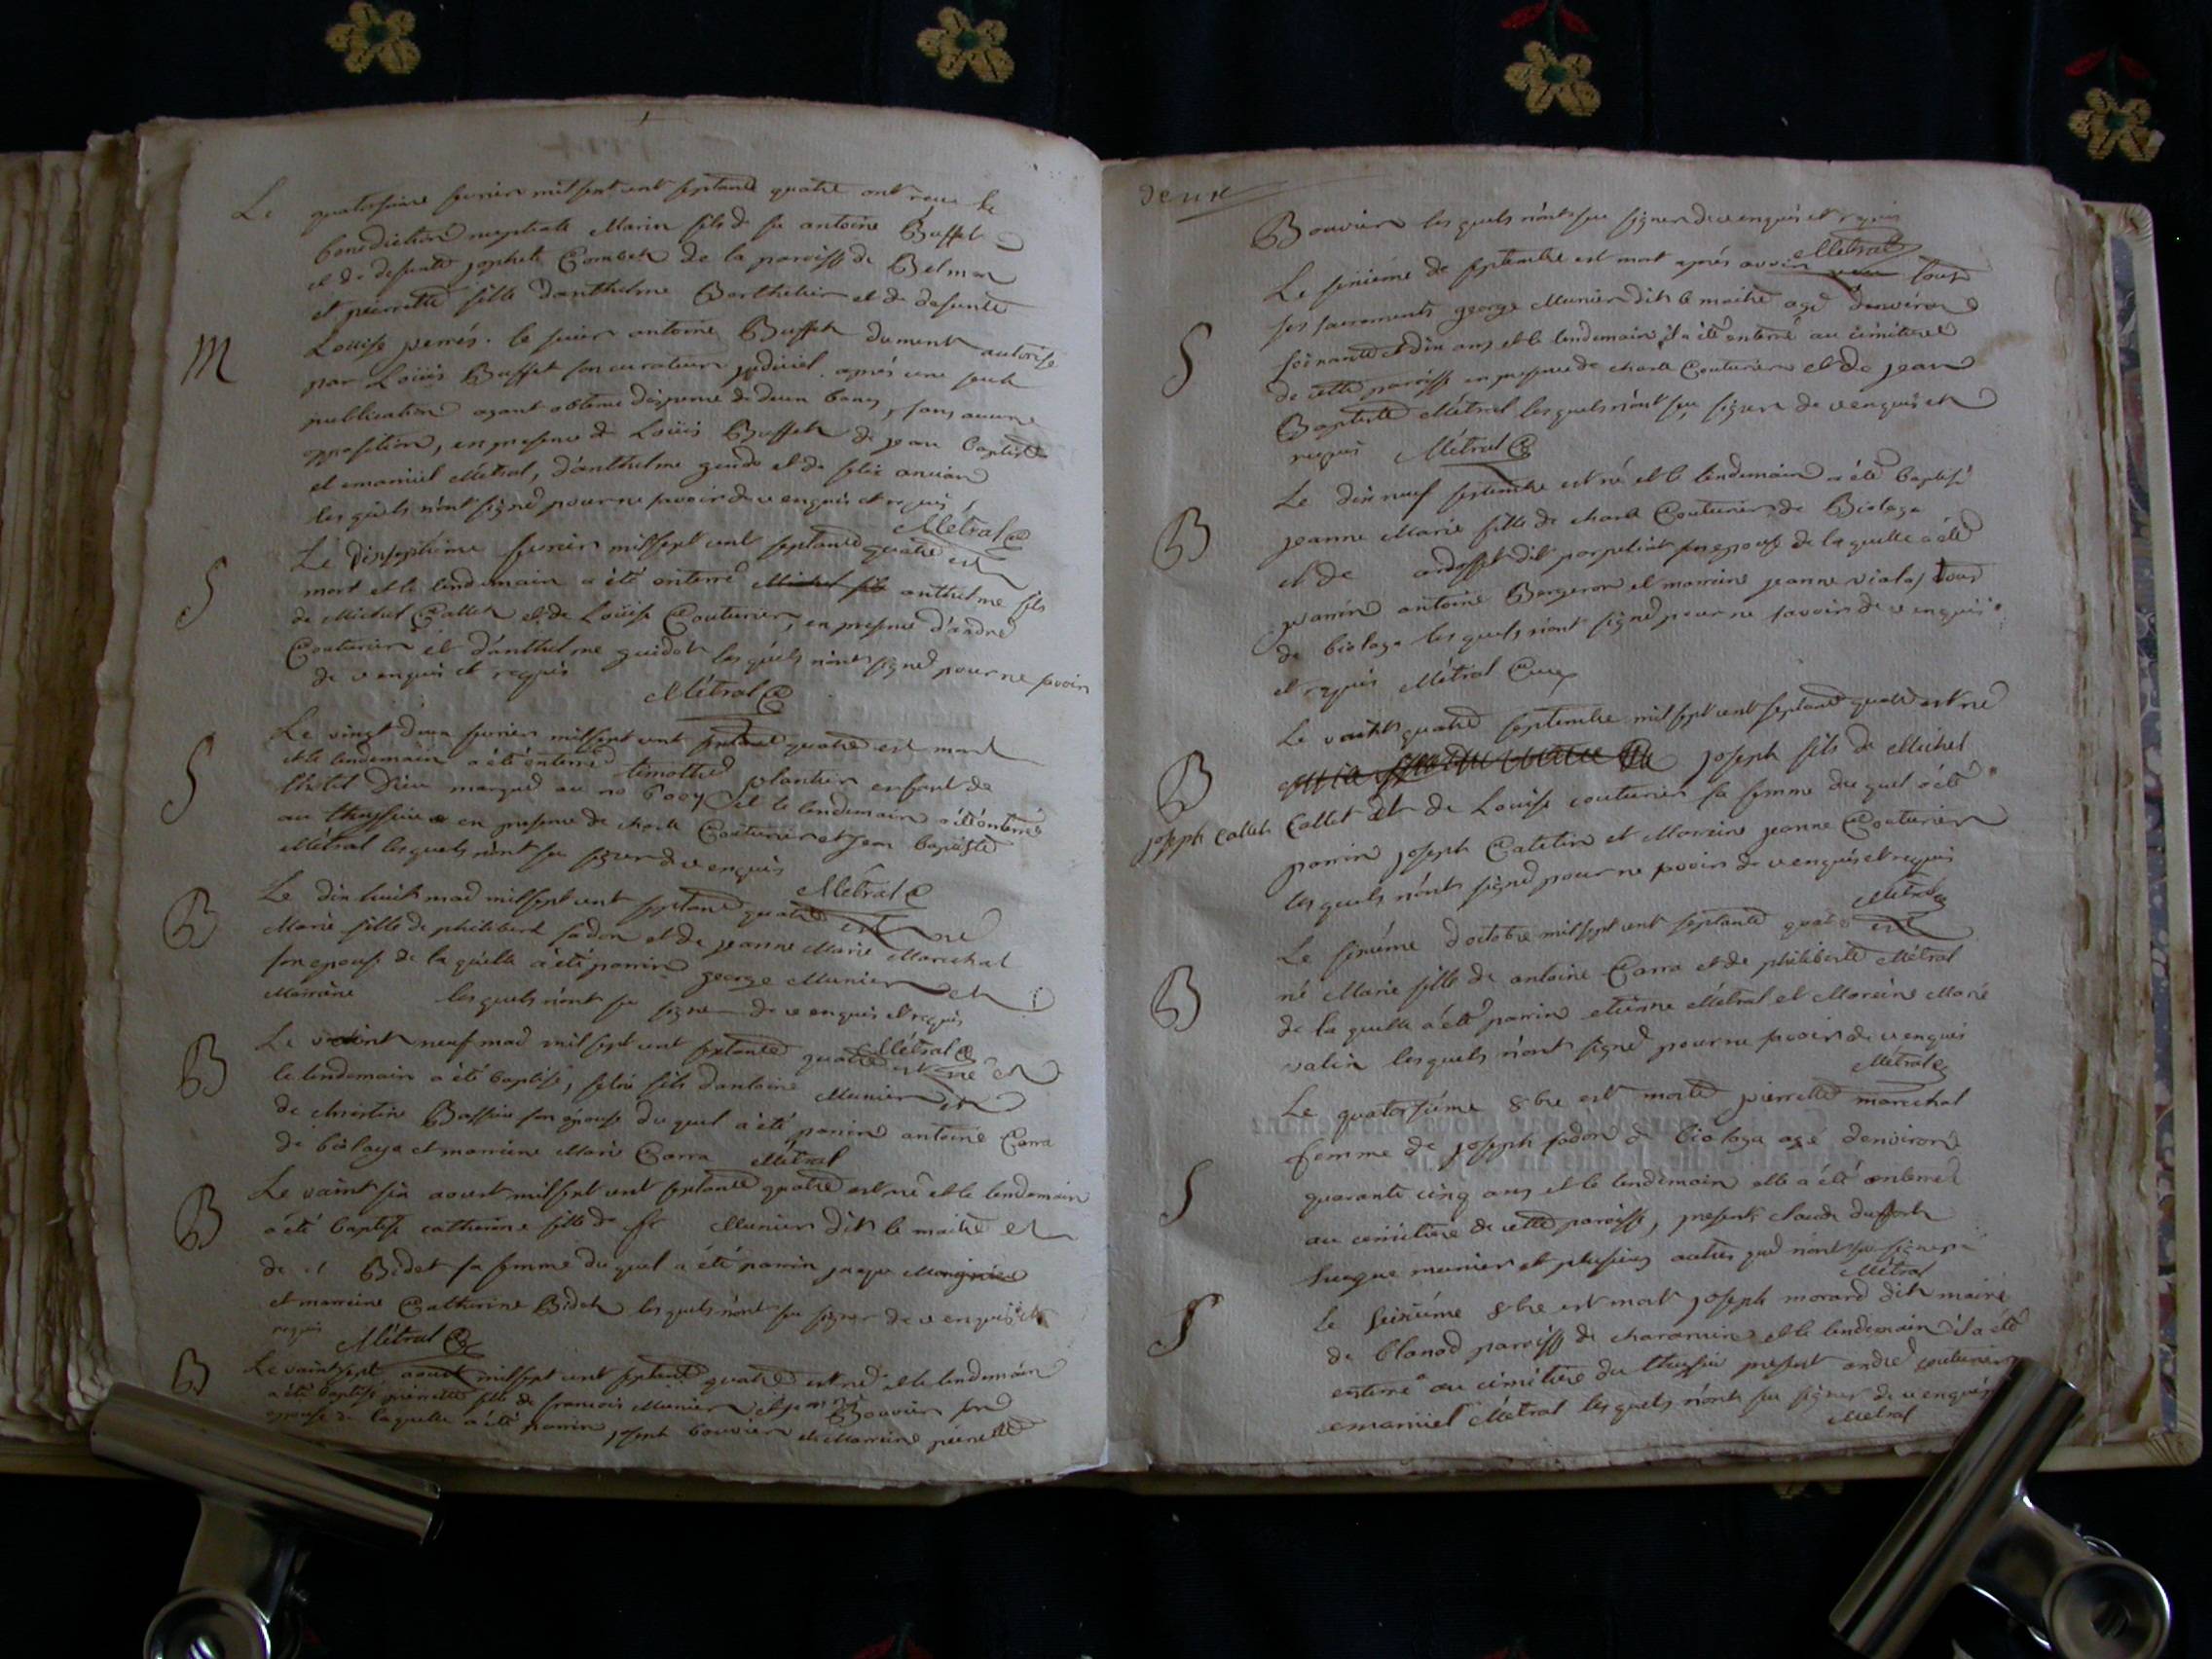 Le quatorsieme fevrier mil sept cent septante quatre ont recu la
benediction nuptiale Marin fils de fu antoine Buffet
et de defunte josephete Combet de la paroisse de Belmon
et pierrette fille d'anthelme Berthelier et de defunte
M
Louise perrés. le susdit antoine Buffet dument autorisé
par Loüis Buffet son curateur judiciel. aprés une seule
publication ayant obtenu dispense de deux bans, sans aucune
opposition, en presence de Loüis Buffet de jean baptiste
et emaniel Métral, d'anthelme guido et de felix
les quels n'ont signé pour ne savoir de ce enquis et requis
Métral C
Le dixseptième fevrier mil sept cent septante quatre est
S
mort et le lendemain a été enterré anthelme fils
de Michel Callet et de Loüise Couturier, en presence d'andré
Couturier et d'anthelme guidot les quels n'ont signé pour ne savoir
de ce enquis et requis
Métral C
Le vingt deux fevrier mil sept cent septante quatre est mort
S
et le lendemain a été enterré timothé plantier enfant de
l'hotel Dieu marqué au no et le lendemain a été enterré
au thuissiere en presence de charle Couturier et jean baptiste
Métral les quels n'ont su signer de ce enquis
Métral C
B
Le dix huit mad mil sept cent septante quatre est né
Marie fille de philibert fadon et de jeanne Marie Marechal
son epouse de la quelle a été parrin george Munier et
Marraine les quels n'ont su signer de ce enquis et requis
Métral C
B
Le vaint neuf mad mil sept cent septante quatre est né et
le lendemain a été baptisé, felix fils d'antoine Munier et
de christine Bassieu son epouse du quel a été parrin antoine Carra
de biolaye et marraine Marie Carra Métral
B
Le vaint six aoust mil sept cent septante quatre est né et le lendemain
a été baptisé catherine fille de fr Munier dit le maitre et
de Bidet sa femme du quel a été parrin jaque
et marraine Catherine Bidet les quels n'ont su signer de ce enquis et
requis Métral C
B
Le vaintsept aoust mil sept cent septante quatre est né et le lendemain
a été baptisé pierrette fille de francois Munier et Bouvier son
epouse de la quelle a été parrin joseph bouvier et Marraine pierrette
deux
Bouvier les quels n'ont su signer de ce enquis et requis
Métral
Le sixième de septembre est mort aprés avoir recu tous
ses sacrements george Munier dit le maitre agé d'environ
S
soixante et dix ans et le lendemain il a été enterré au cimitiere
de cette paroisse en presence de charle Couturier et de jean
Baptiste Métral les quels n'ont su signer de ce enquis et
requis Métral C
Le dix neuf septembre est né et le lendemain a été baptisé
B
jeanne Marie fille de charle Couturier de Biolaga
et de dit son epouse de la quelle a été
parrin antoine Bergeron et marraine jeanne vialaz tous
de biolaga les quels n'ont signé pour ne savoir de ce enquis
et requis Métral Curé
Le vaint quatre septembre mil sept cent septante quatre est né
B
joseph fils de Michel
joseph Callet
Callet et de Louise couturier sa femme du quel a été
parrin joseph Catelin et Marraine jeanne Couturier
les quels n'ont signé pour ne savoir de ce enquis et requis
Métral C
Le sixième d'octobre mil sept cent septante quatre est
B
né Marie fille de antoine Carra et de philiberte Métral
de la quelle a été parrin etienne Métral et Marraine Marie
valin les quels n'ont signé pour ne savoir de ce enquis
Métral C
Le quatorsième 8bre est morte pierrette marechal
femme de joseph fadon de biolaga agé d'environ
S
quarante cinq ans et le lendemain elle a été enterré
au cimitiere de cette paroisse, presents claude
munier et plusieurs autres qui n'ont su signer
Métral
S
Le seixième 8bre est mort joseph morard dit maire
de blanod paroisse de charamin et le lendemain il a été
enterré au cimitiere du thuissiu present andré couturier
emaniel Métral les quels n'ont su signer de ce enquis
Métral